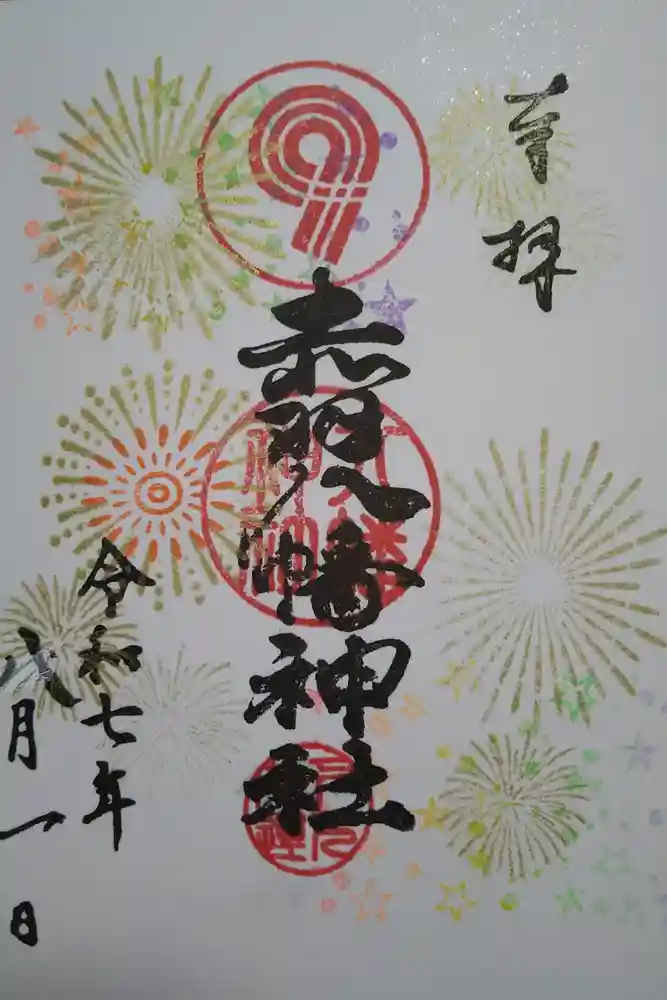 奉拝
赤羽八幡神社
令和七年
八月一日